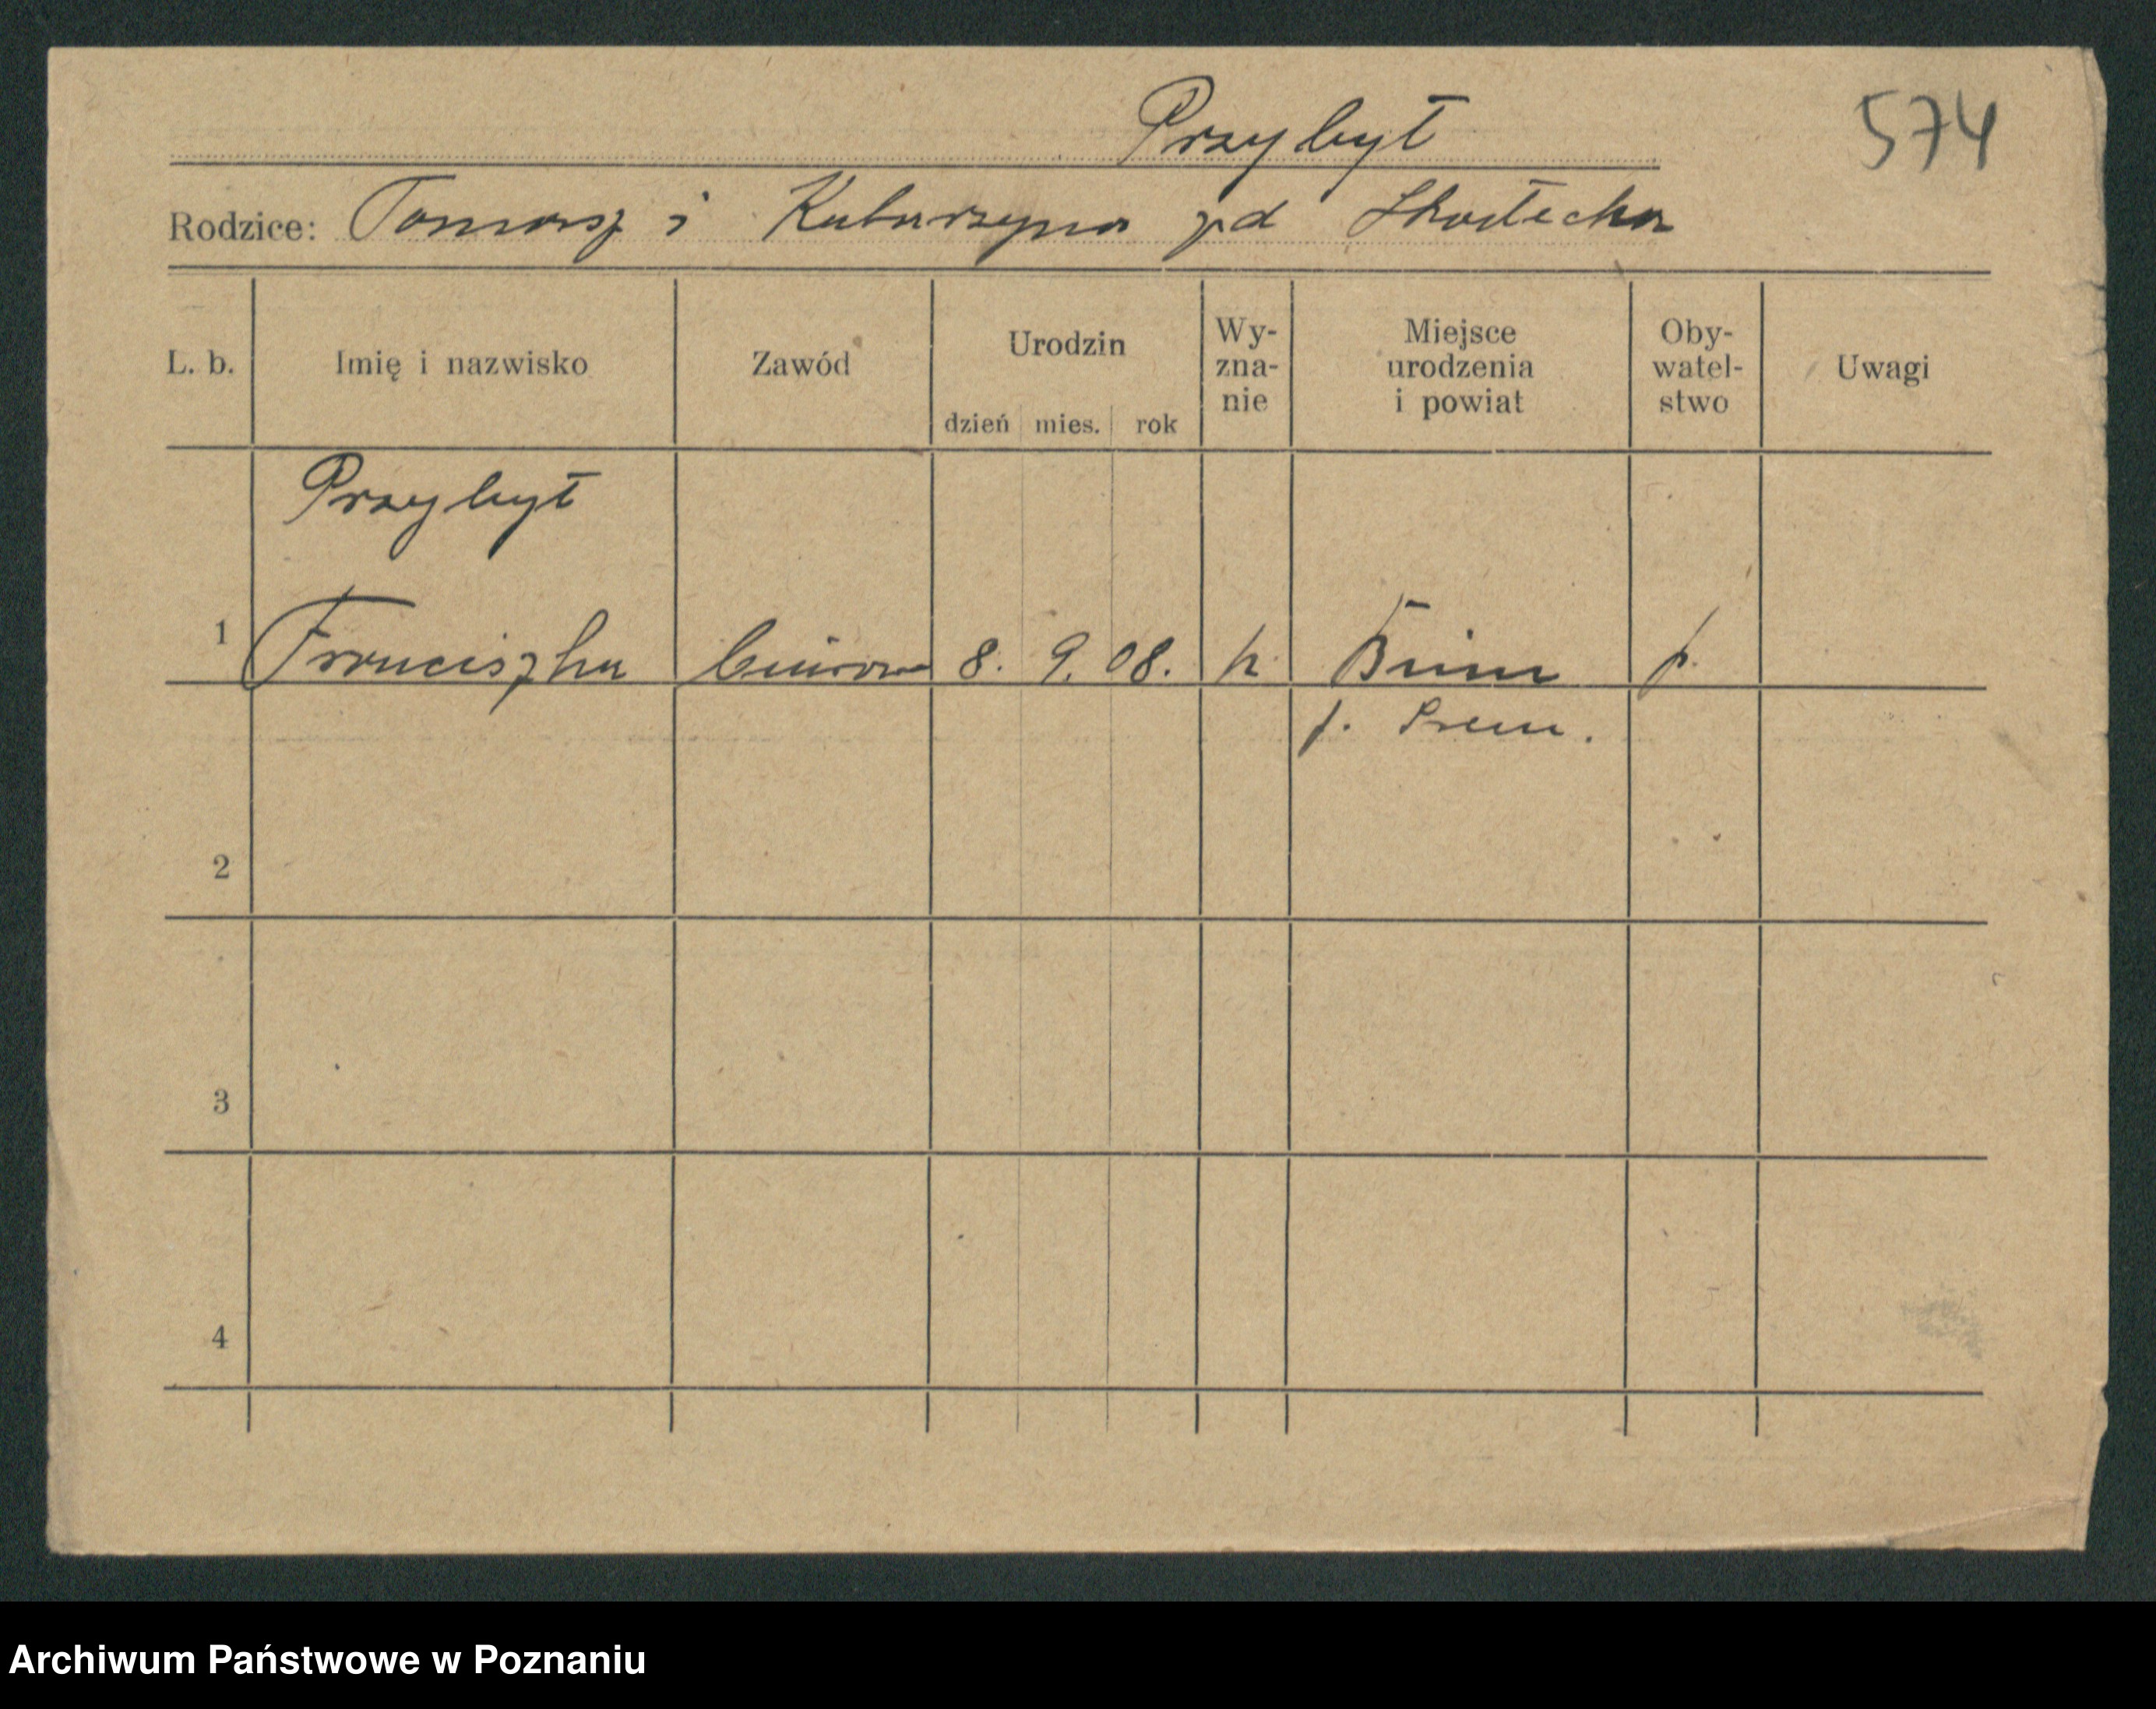 Przybył
574
Rodzice: Tomasz i Katarzyna zd
L. b.
Imię i nazwisko
Zawód
Urodzin
dzień mies. rok
Wy-
zna-
nie
Miejsce
urodzenia
i powiat
Oby-
watel-
stwo
Uwagi
Przybył
1 Franciszka biurowa 8. 9. 08. k. p.
p. Śrem.
2
3
4
Archiwum Państwowe w Poznaniu